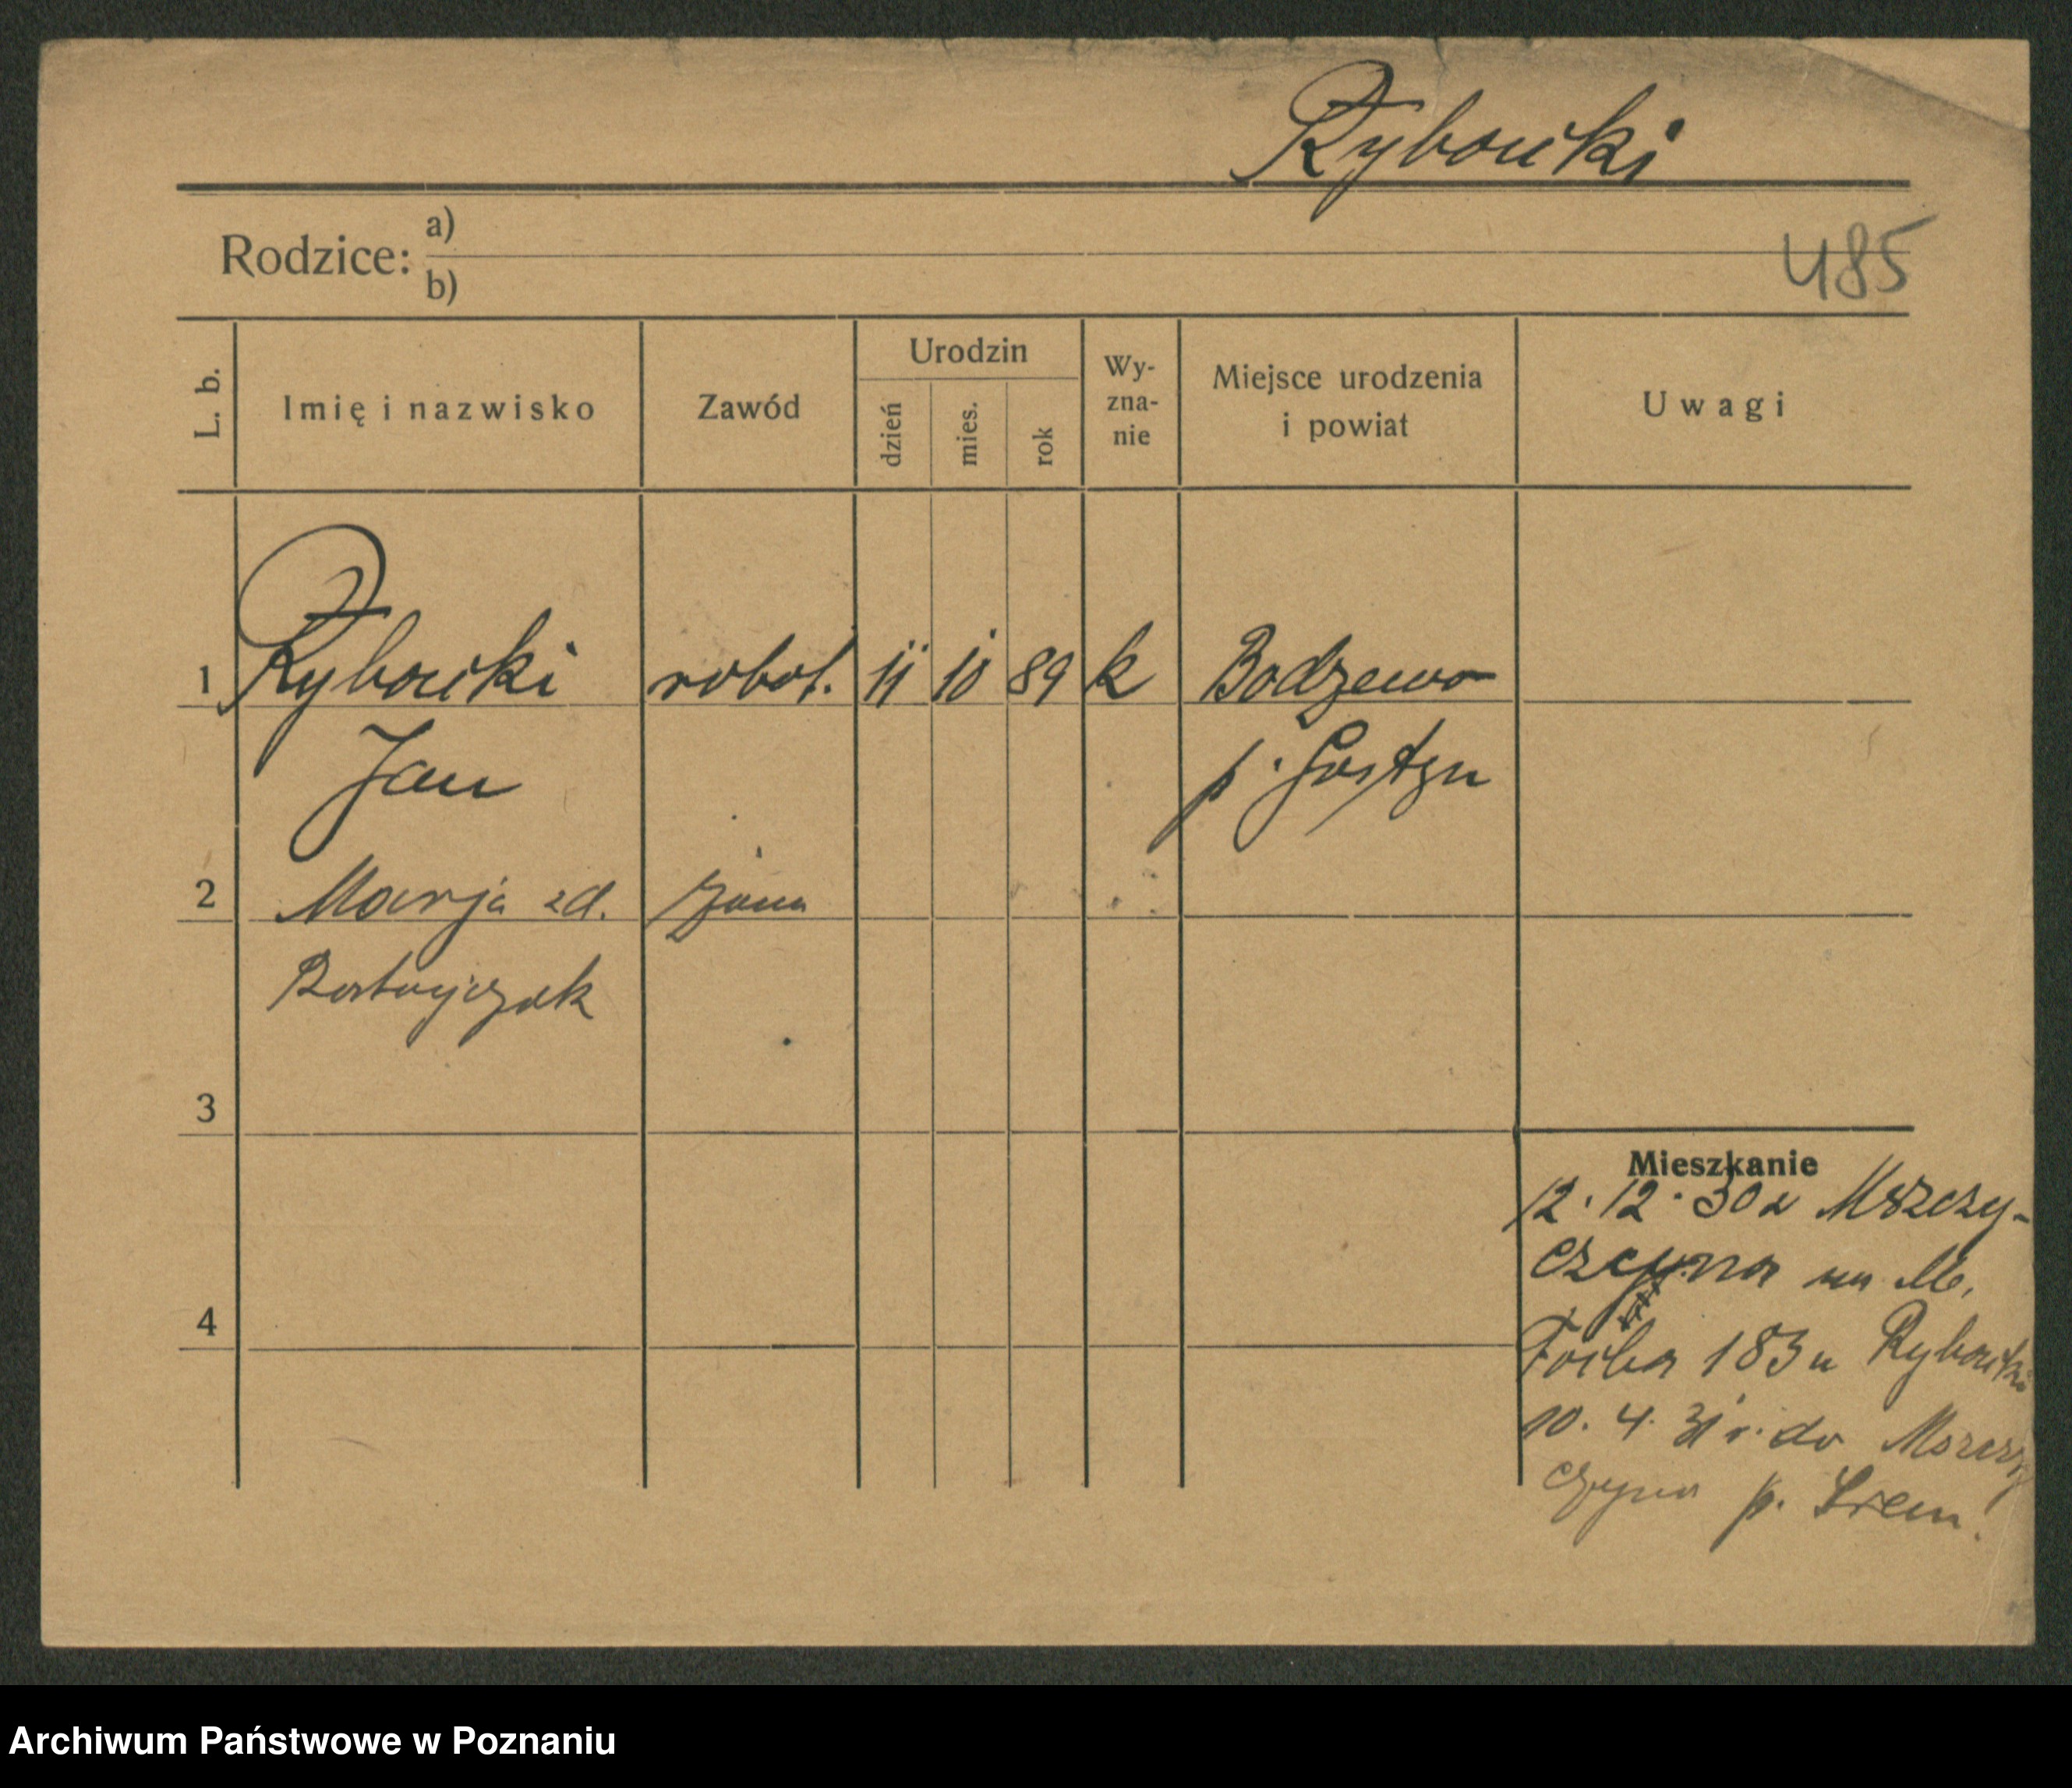 Rybowki
Rodzice: a)
b)
485
L. b.
Imię i nazwisko
Zawód
Urodzin
dzień mies. rok
Wy-
zna-
nie
Miejsce urodzenia
i powiat
Uwagi
1 Rybowki robot. 11 10 89 k Bodzewo
Jan p. Gostyn
2 Marja zd. żona
Ratajczak
3
Mieszkanie
12. 12. 30 z Mszczy-
czyna na M.
4
183 u Rybowki
10. 4. 31 r. do Mszczy
czyna p. Śrem.
Archiwum Państwowe w Poznaniu